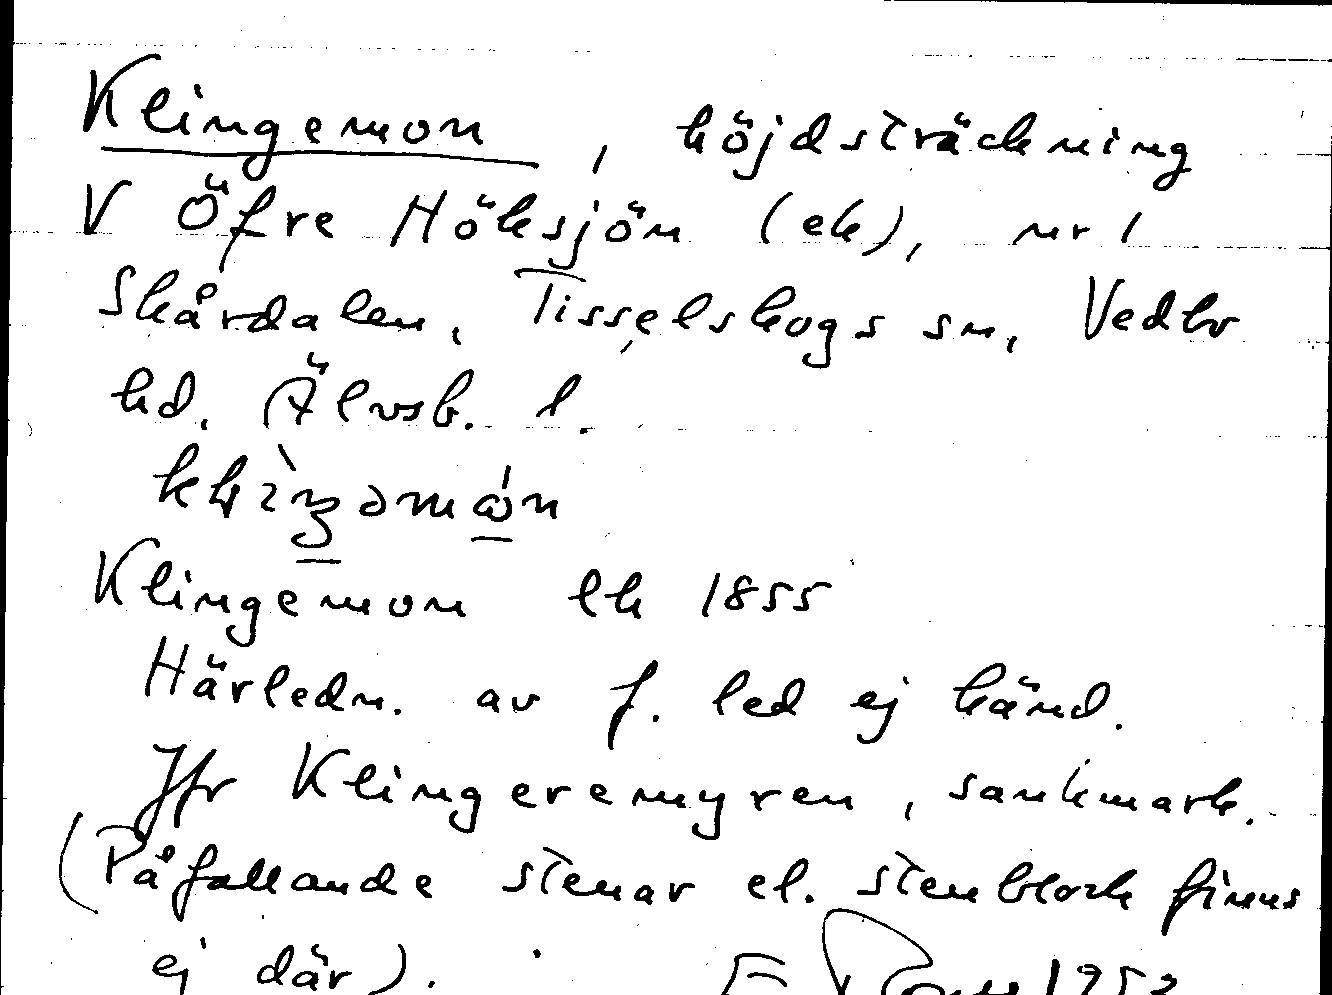 Klingemon, höjdsträckning
V Öfre Höksjön (ek), nr 1
Skårdalen, Tisselskogs sn, Vedbo
hd. Älvsb. l.
Klingemon lk 1855
Härledn. av f. led ej känd.
Jfr Klingeremyren, sankmark.
(Påfallande stenar el. stenblock finns
ej där).